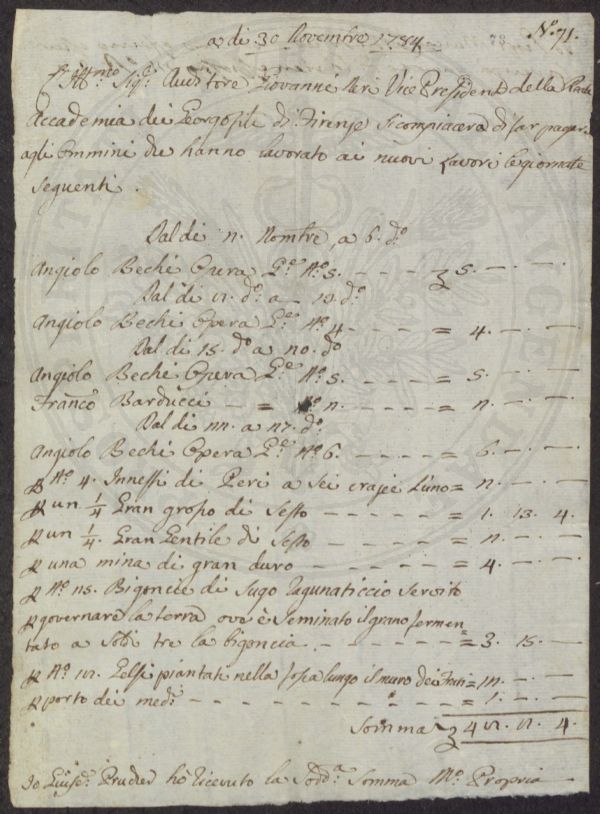 a di 30 Novembre 1784 N.o 71.
Illmo. Sig.e Auditore Giovanni Neri Vice President della Reale
Accademia dei Georgofili di Firenze si compiacerà di far pagare
agli Ommini che hanno lavorato ai nuovi Lavori le giornate
seguenti.
Dal di 2. Nombre, a 6. d.o
Angiolo Bechi Opera N.o 5. - - - - 5. - -
Dal di d.o a 13. d.o
Angiolo Bechi Opera N.o 4 - - - - = 4. - -
Dal di 15. d.o a 20. d.o
Angiolo Beche Opera N.o 5. - - - - = 5. - -
Franco. Barducci - = N.o 2. - - - - = 2. - -
Dal di 22. a 27. d.o
Angiolo Bechi Opera N.o 6. - - - - = 6. - -
P N.o 4. Innesti di Peri a Sei crazie l'uno = 2. - -
P un 1/4 Gran grosso di Sesto - - - - - = 1. 13. 4.
P un 1/4. Gran Gentile di Sesto - - - - - = 2. - -
P una mina di gran duro - - - - - = 4. - -
P N.o 25. Bigoncie di Sugo servito
P governare la terra ove è Seminato il grano fermen
tato a Soldi tre la bigoncia - - - - - = 3. 15. -
P N.o Gelsi piantati nella fossa lungo il muro dei Frati = 12. - -
P porto dei med.i - - - - - - - 1. - -
Somma 4
Io ho ricevuto la Sodd.a Somma M.o Propria